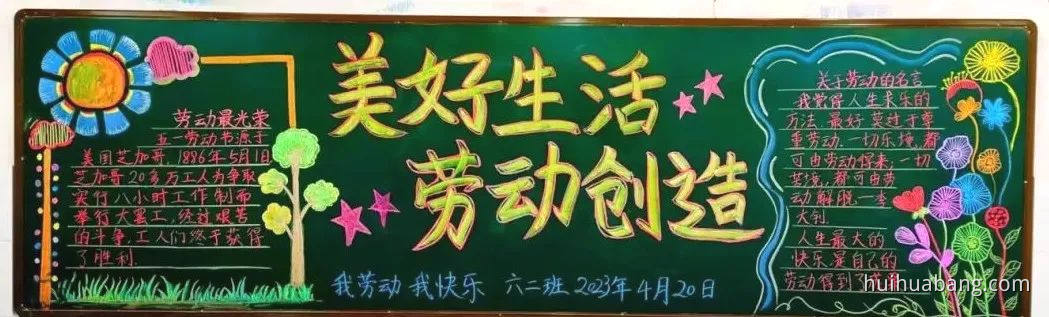 美好生活
劳动创造
劳动最光荣
五一劳动节源于
美国芝加哥,1886年5月1日
芝加哥20多万工人为争取
实行八小时工作制而
举行大罢工,经过艰苦
的斗争,工人们终于获得
了胜利.
我劳动 我快乐 六二班 2023年4月20日
关于劳动的名言
我觉得人生求乐的
方法,最好莫过于尊
重劳动.一切乐境,都
可由劳动得来,一切
苦境,都可由劳
动解脱.一李
大钊.
人生最大的
快乐是自己的
劳动得到了成果
huihuabang.com